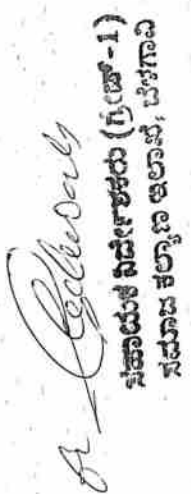 ಸಹಾಯಕ ನಿರ್ದೇಶಕರು (ಗ್ರೇಡ್-1)
ಸಮಾಜ ಕಲ್ಯಾಣ ಇಲಾಖೆ, ಬೆಳಗಾವಿ